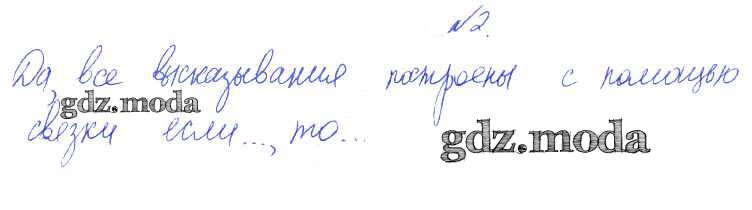 №2.
Да, все высказывания построены с помощью
gdz.moda
связки если..., то...
gdz.moda